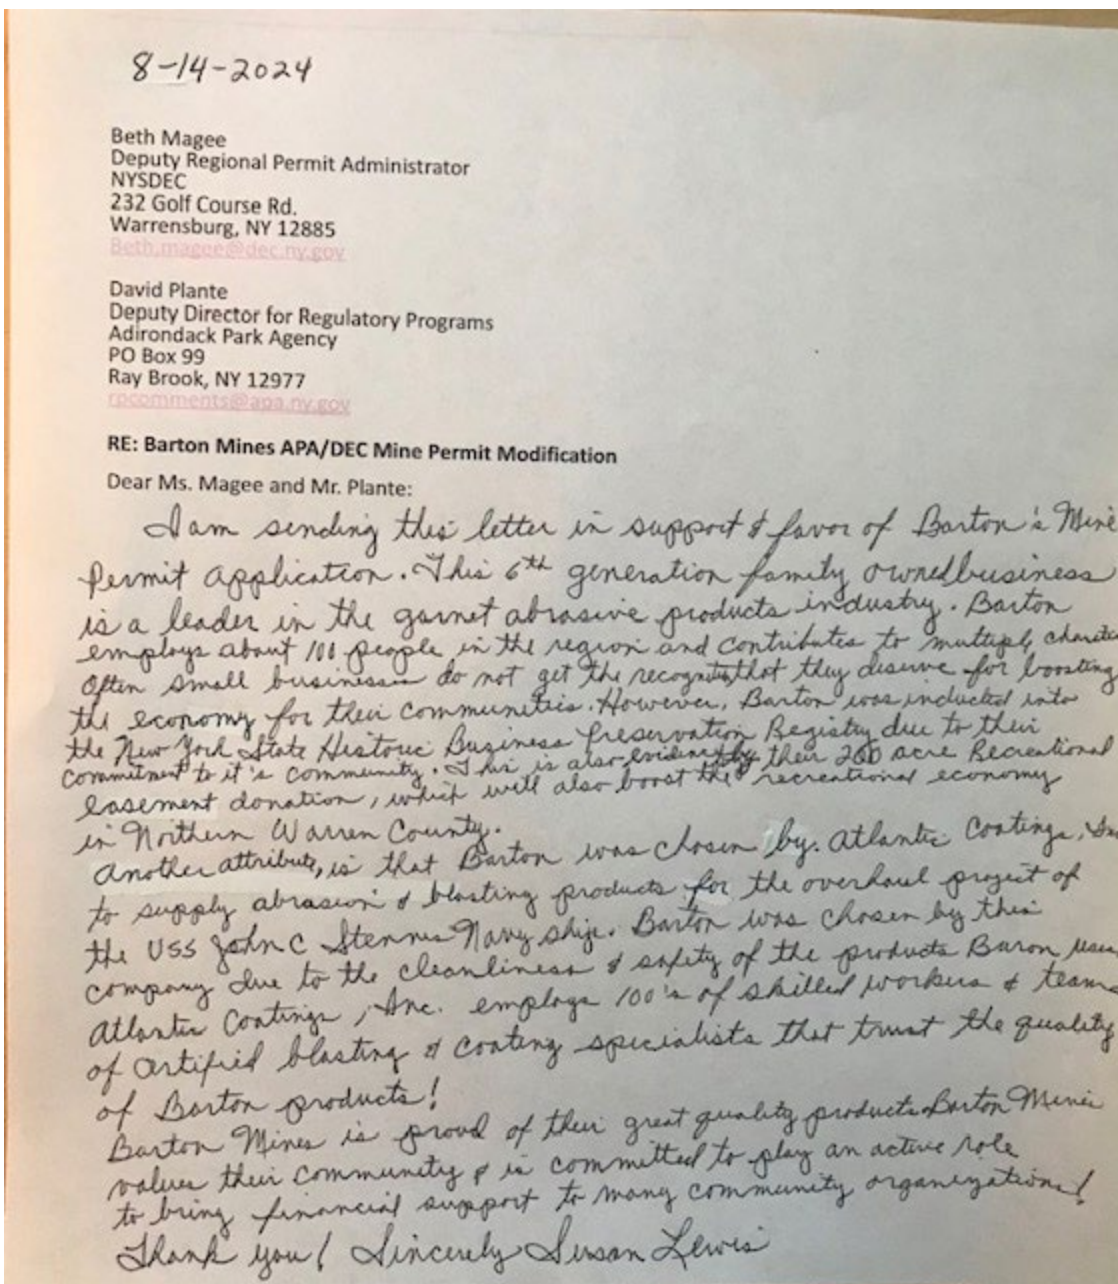 8-14-2024
Beth Magee
Deputy Regional Permit Administrator
NYSDEC
232 Golf Course Rd.
Warrensburg, NY 12885
Beth.magee@dec.ny.gov
David Plante
Deputy Director for Regulatory Programs
Adirondack Park Agency
PO Box 99
Ray Brook, NY 12977
rpcomments@apa.ny.gov
RE: Barton Mines APA/DEC Mine Permit Modification
Dear Ms. Magee and Mr. Plante:
I am sending this letter in support & favor of Barton's Mine
Permit Application. This 6th generation family owned business
is a leader in the garnet abrasive products industry. Barton
employs about 100 people in the region and contributes to multiple
Often small businesses do not get the that they deserve for boosting
the economy for their communities. However, Barton was inducted into
the New York State Historic Business Preservation Registry due to their
commitment to it's community. This is also by their acre Recreational
easement donation, which will also boost the recreational economy
in Northern Warren County.
Another attribute, is that Barton was chosen by. Atlantic Coatings,
to supply abrasion & blasting products for the overhaul project of
the USS John C Stennis Navy ship. Barton was chosen by this
company due to the cleanliness & safety of the products Baron
Atlantic Coatings, Inc. employs 100's of skilled workers & teams
of blasting & coating specialists that trust the quality
of Barton products!
Barton Mines is proud of their great quality products. Barton Mines
values their community & is committed to play an active role
to bring financial support to many community organizations!
Thank you! Sincerely Susan Lewis